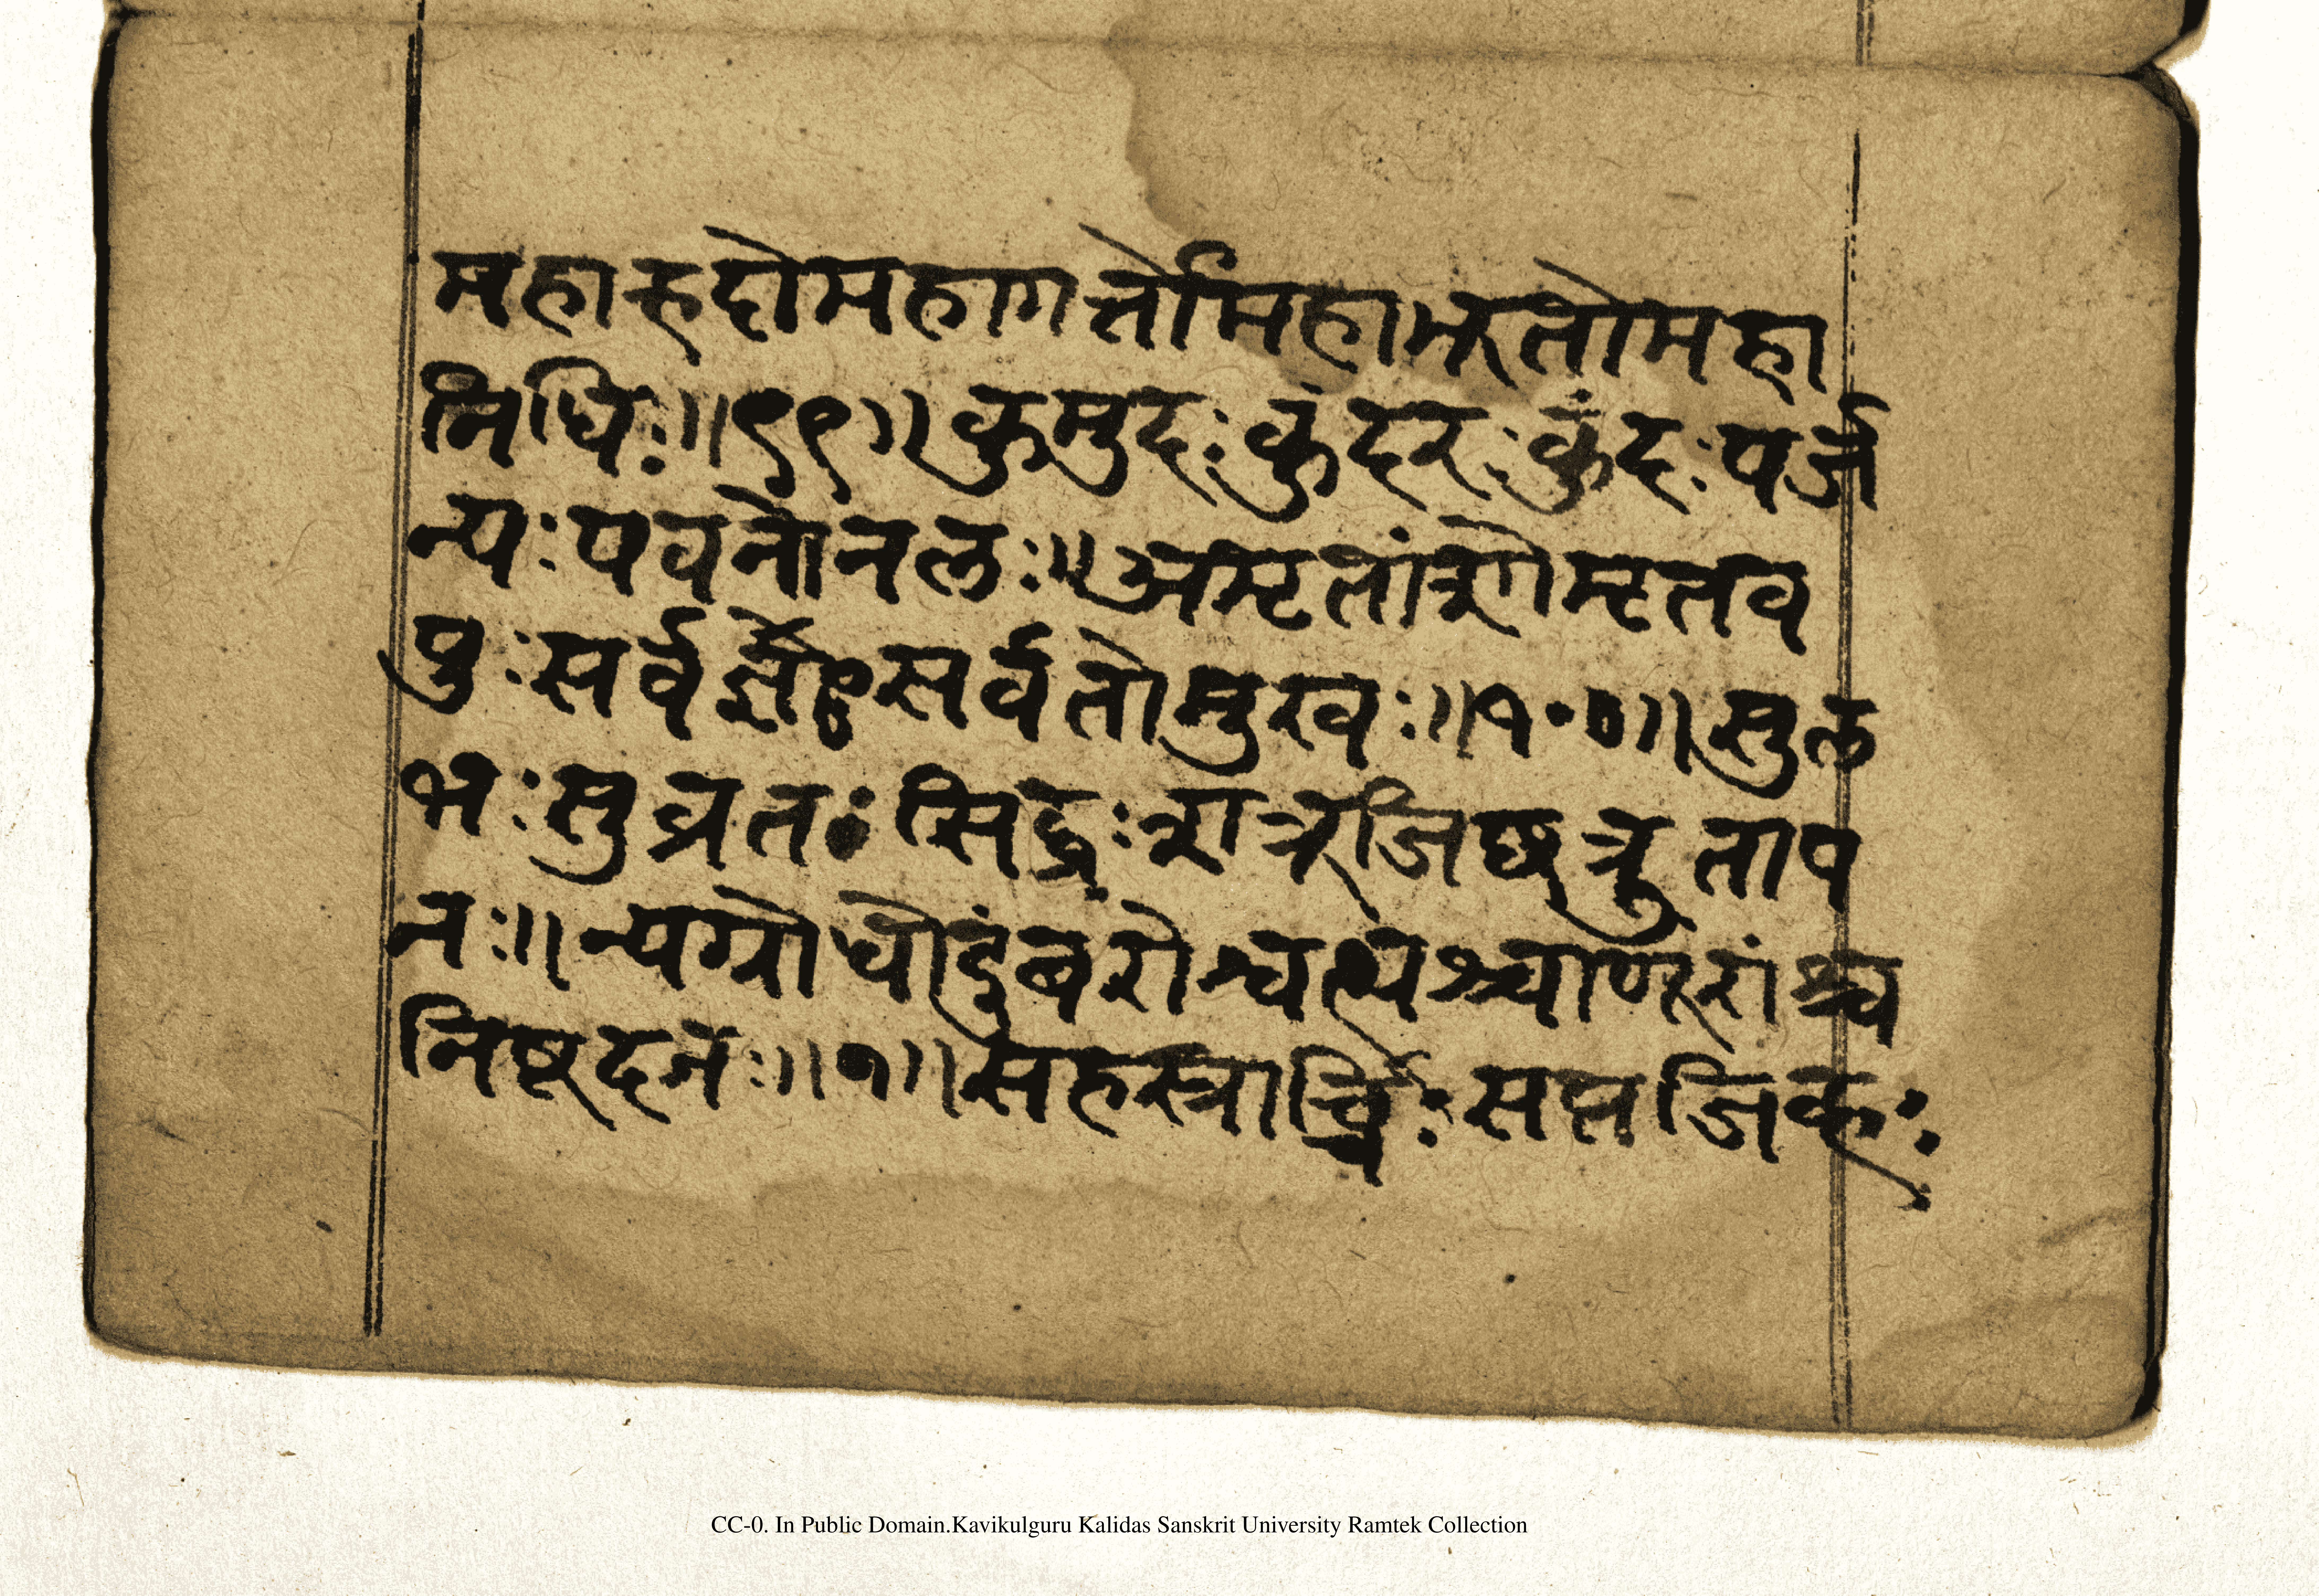 महाह्रदोमहागर्त्तोमहाभूतोमहा
निधिः॥९९॥कुमुदःकुंदरःकुंदःपर्ज
न्यःपवनोनलः॥अमृतांशोमृतव
पुःसर्वज्ञःसर्वतोमुखः॥१००॥सुल
भःसुव्रतःसिद्धःशत्रूजिछत्रुताप
नः॥न्यग्रोधोदुंबरोश्वत्थश्चाणूरांध्र
निषूदनः॥१॥सहस्रार्च्चिःसप्तजिह्वः
CC-0. In Public Domain.Kavikulguru Kalidas Sanskrit University Ramtek Collection